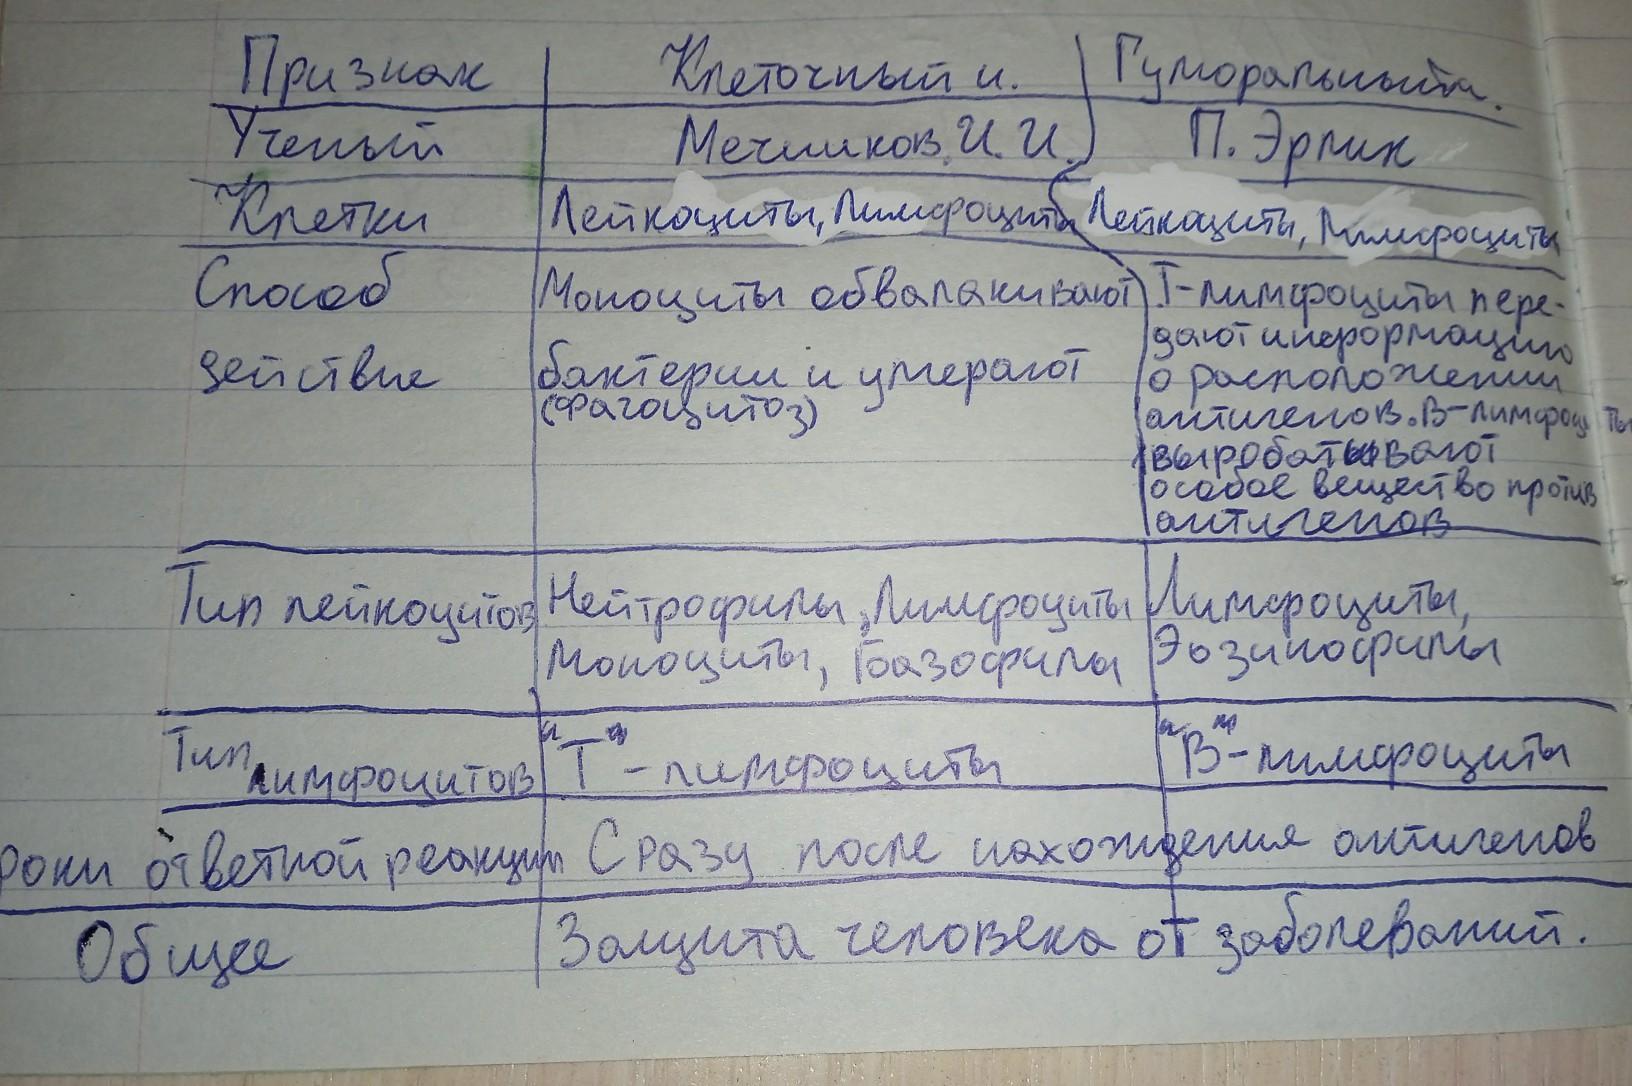 Признак Клеточный и. Гуморальный и.
Ученый Мечников И. И. П. Эрлих
Клетки Лейкоциты, Лимфоциты Лейкоциты, Лимфоциты
Способ
действие
Моноциты обвалакивают
бактерии и умерают
(фагоцитоз)
Т-лимфоциты пере-
дают информацию
о расположении
антигенов. В-лимфоциты
выробатывают
особое вещество против
антигенов
Тип лейкоцитов
Нейтрофилы, Лимфоциты
Моноциты, Базофилы
Лимфоциты,
Эозинофилы
Тип
лимфоцитов
"Т" - лимфоциты
"В"-лимфоциты
роки ответной реакции Сразу после нахождения антигенов
Общее Защита человека от заболеваний.